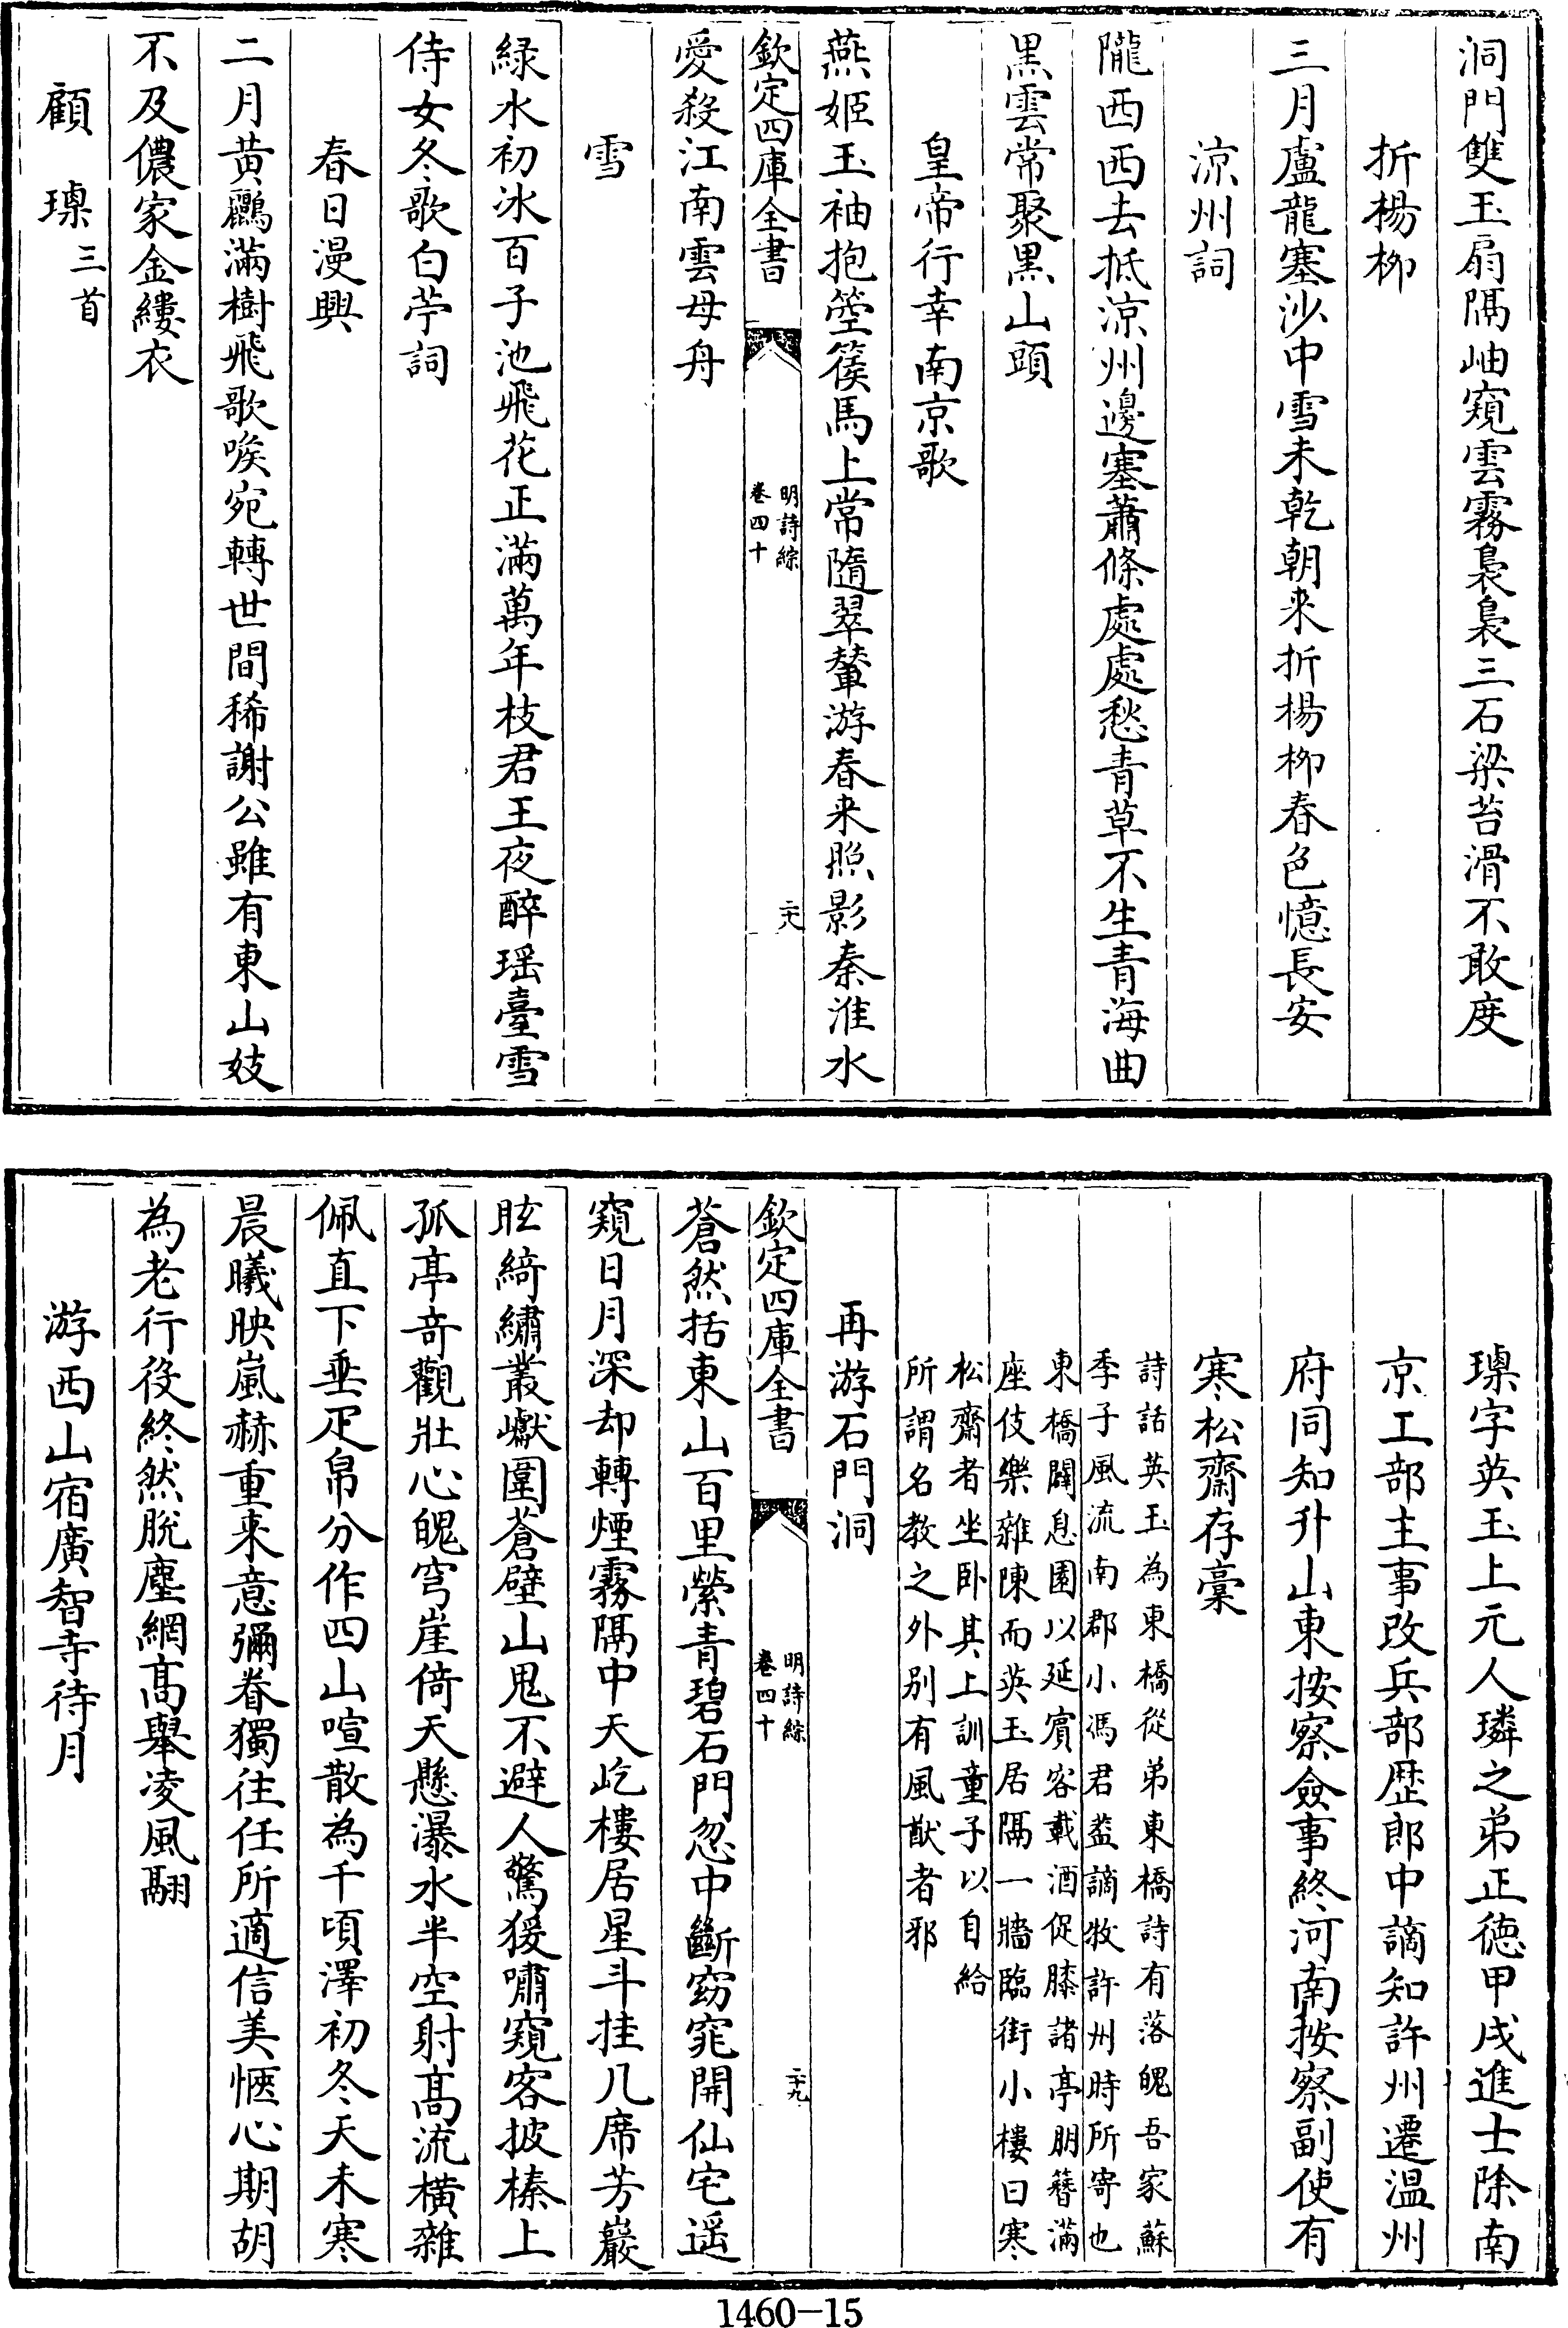 洞門雙玉扇隔岫窺雲霧裊裊三石梁苔滑不敢度
折楊柳
三月盧龍塞沙中雪未乾朝来折楊柳春色憶長安
涼州詞
隴西西去抵涼州邊塞蕭條處處愁青草不生青海曲
黒雲常聚黒山頭
皇帝行幸南京歌
燕姬玉袖抱箜篌馬上常隨翠輦游春来照影秦淮水
欽定四庫全書
明詩綜
卷四十
二十八
愛殺江南雲母舟
雪
緑水初冰百子池飛花正滿萬年枝君王夜醉瑶臺雪
侍女冬歌白苧詞
春日漫興
二月黄鸝滿樹飛歌喉宛轉世間稀謝公雖有東山妓
不及儂家金縷衣
顧璖三首
璖字英玉上元人璘之弟正徳甲戌進士除南
京工部主事改兵部歴郎中謫知許州遷温州
府同知升山東按察僉事終河南按察副使有
寒松齋存稾
詩話英玉為東橋從弟東橋詩有落魄吾家蘇
季子風流南郡小馮君葢謫牧許州時所寄也
東橋闢息園以延賔客載酒促膝諸亭朋簪滿
座伎樂雜陳而英玉居隔一牆臨街小樓曰寒
松齋者坐卧其上訓童子以自給
所謂名教之外别有風猷者邪
再游石門洞
欽定四庫全書
明詩綜
卷四十
二十九
蒼然括東山百里縈青碧石門忽中斷窈窕開仙宅遥
窺日月深却轉煙霧隔中天屹樓居星斗挂几席芳巖
眩綺繡叢巘圍蒼壁山鬼不避人驚猨嘯窺客披榛上
孤亭竒觀壯心魄穹崖倚天懸瀑水半空射髙流横雜
佩直下垂疋帛分作四山喧散為千頃澤初冬天未寒
晨曦映嵐赫重来意彌眷獨往任所適信美愜心期胡
為老行役終然脫塵網髙舉凌風翮
游西山宿廣智寺待月
1460-15